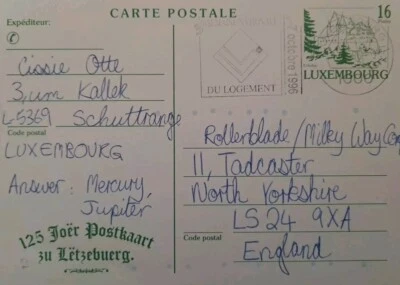 CARTE POSTALE
Expéditeur:
Cissie Otte
3, um Kallek
L-5369 Schuttrange
Code postal
LUXEMBOURG
Answer: Mercury,
Jupiter
125 Joër Postkaart
zu Lëtzebuerg.
DU LOGEMENT
octobre 1996
16
LUXEMBOURG
Rollerblade/Milky Way Com
11, Tadcaster
North Yorkshire
LS24 9XA
Code postal
England